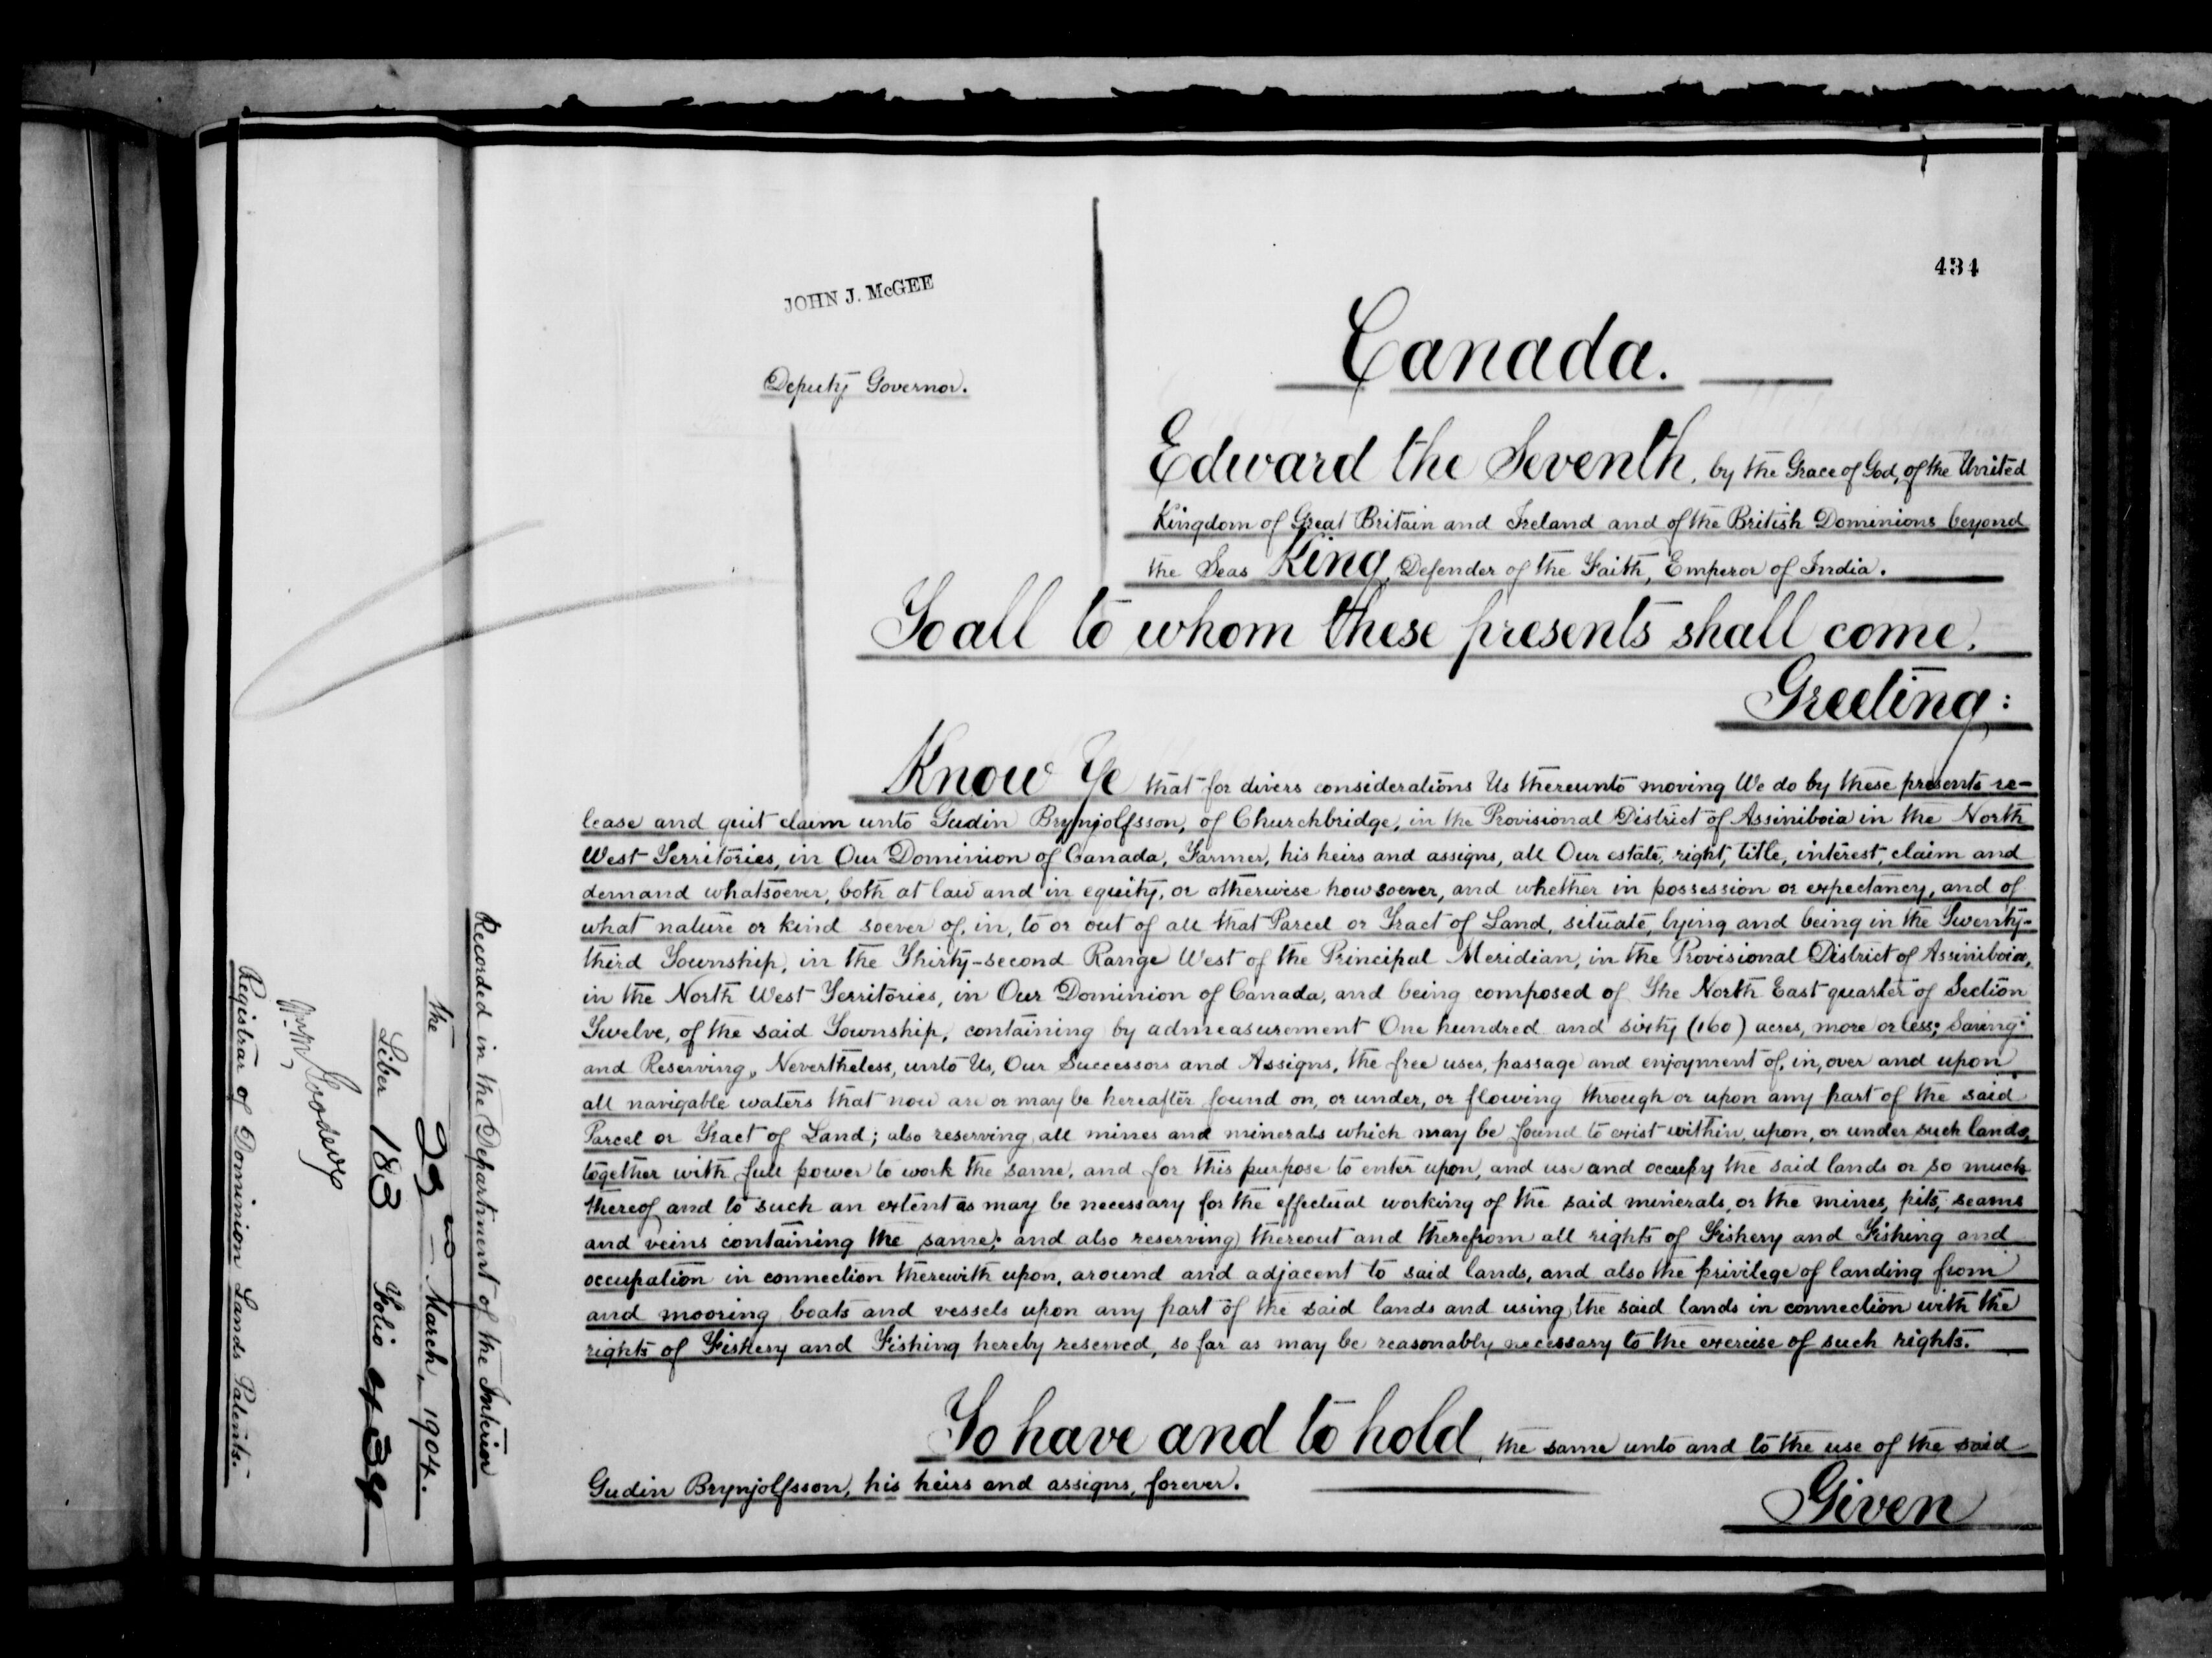 434
JOHN J. McGEE
Deputy Governor.
Canada.
Edward the Seventh, by the Grace of God, of the United
Kingdom of Great Britain and Ireland and of the British Dominions beyond
the Seas King, Defender of the Faith, Emperor of India.
To all to whom these presents shall come,
Greeting:
Know Ye that for divers considerations Us thereunto moving We do by these presents re-
lease and quit claim unto Gudin Brynjolfsson, of Churchbridge, in the Provisional District of Assiniboia in the North
West Territories, in Our Dominion of Canada, Farmer, his heirs and assigns, all Our estate, right, title, interest, claim and
demand whatsoever, both at law and in equity, or otherwise howsoever, and whether in possession or expectancy, and of
what nature or kind soever of, in, to or out of all that Parcel or Tract of Land, situate, lying and being in the Twenty-
third Township, in the Thirty-second Range West of the Principal Meridian, in the Provisional District of Assiniboia,
in the North West Territories, in Our Dominion of Canada, and being composed of The North East quarter of Section
Twelve, of the said Township, containing by admeasurement One hundred and sixty (160) acres, more or less; Saving
and Reserving, Nevertheless, unto Us, Our Successors and Assigns, the free uses, passage and enjoyment of, in, over and upon
all navigable waters that now are or may be hereafter found on, or under, or flowing through or upon any part of the said
Parcel or Tract of Land; also reserving all mines and minerals which may be found to exist within, upon, or under such lands,
together with full power to work the same, and for this purpose to enter upon, and use and occupy the said lands or so much
thereof and to such an extent as may be necessary for the effectual working of the said minerals, or the mines, pits, seams
and veins containing the same; and also reserving thereout and therefrom all rights of Fishery and Fishing and
occupation in connection therewith upon, around and adjacent to said lands, and also the privilege of landing from
and mooring boats and vessels upon any part of the said lands and using the said lands in connection with the
rights of Fishery and Fishing hereby reserved, so far as may be reasonably necessary to the exercise of such rights.
To have and to hold, the same unto and to the use of the said
Gudin Brynjolfsson, his heirs and assigns, forever.
Given
Recorded in the Department of the Interior
the March, 1904.
Liber 183 Folio
Registrar of Dominion Lands Patents.